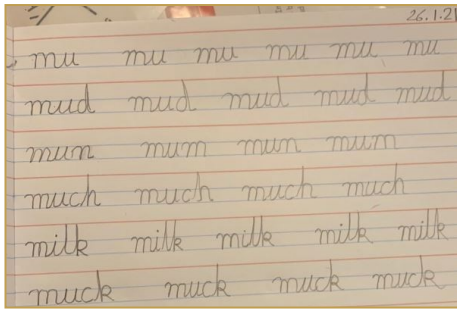 26.1.21
mu mu mu mu mu mu
mud mud mud mud mud
mun mum mun mum
much much much much
milk milk milk milk milk
muck muck muck muck